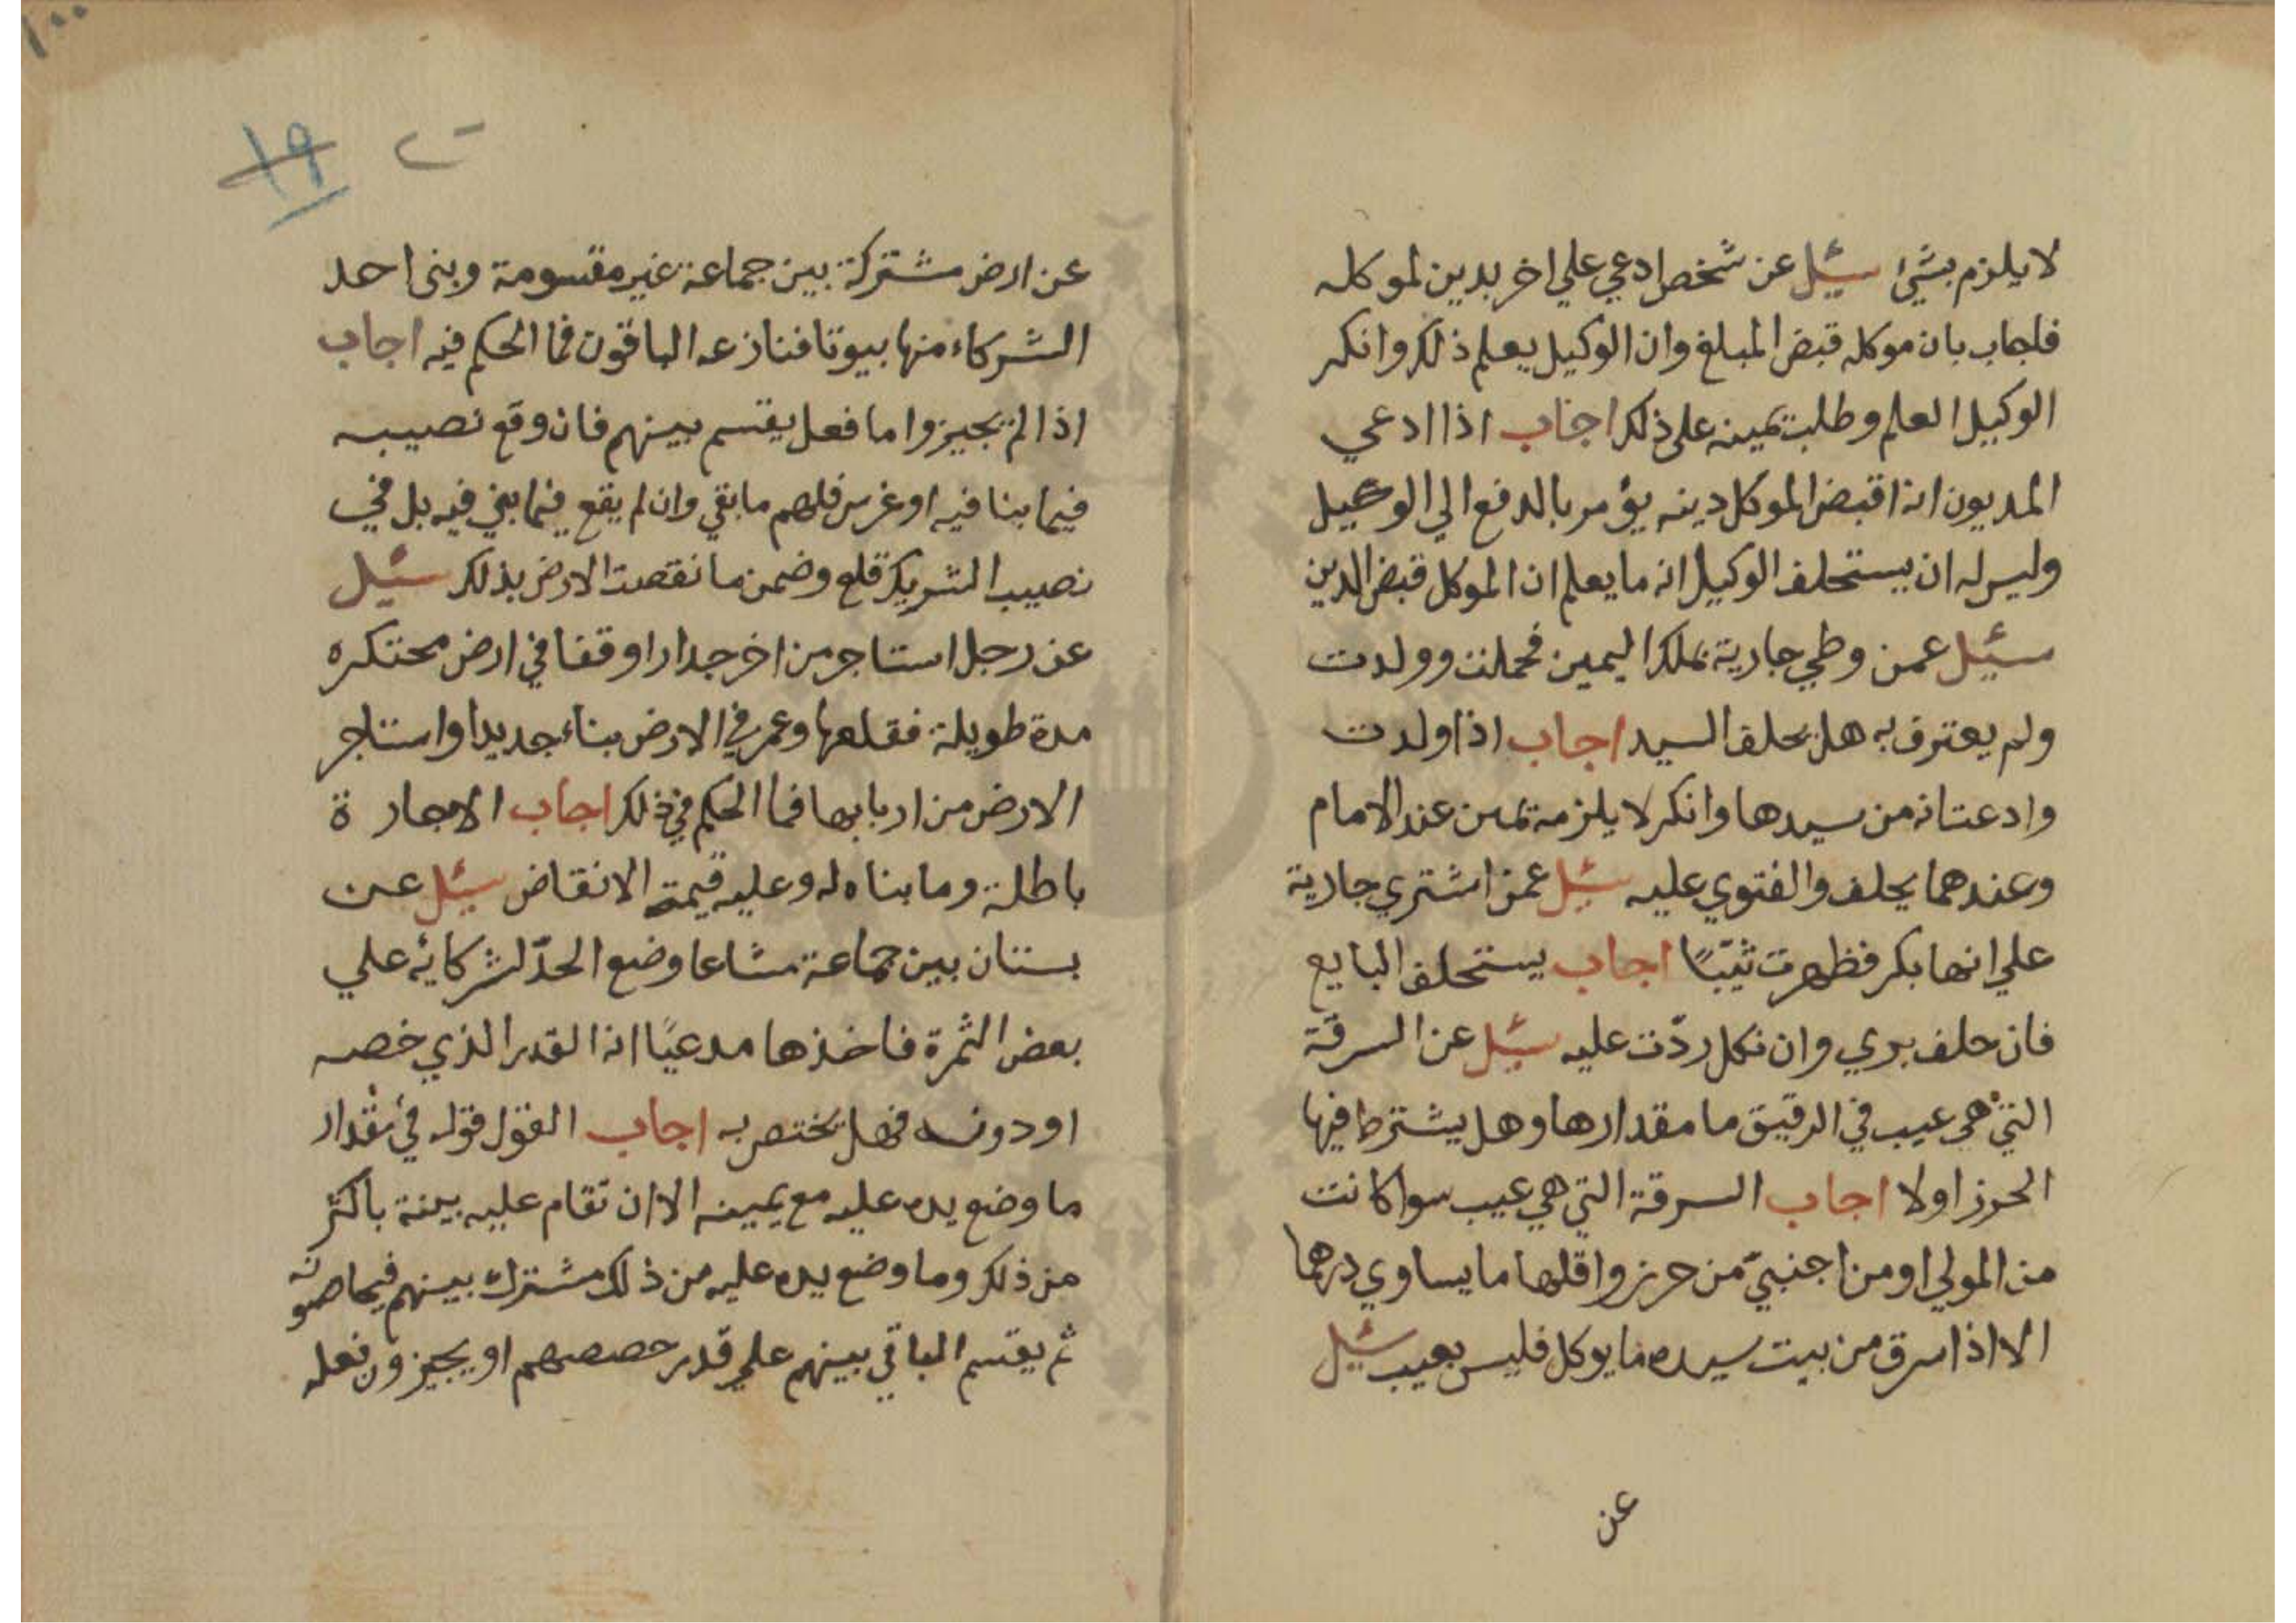 لا يلزم بشيء سئل عن شخص ادعي علي اخر بدين لموكله
فاجاب بان موكله قبض المبلغ وان الوكيل يعلم ذلك وانكر
الوكيل العلم وطلبت يمينه على ذلك اجاب اذا ادعي
المديون انه اقبض الموكل دينه يؤمر بالدفع الي الوكيل
وليس له ان يستحلف الوكيل انه ما يعلم ان الموكل قبض الدين
سئل عمن وطي جارية بملك اليمين فحملت وولدت
ولم يعترف به هل يحلف السيد اجاب اذا ولدت
وادعت انه من سيدها وانكر لا يلزمه يمين عند الامام
وعندهما يحلف والفتوي عليه سئل عمن اشتري جارية
علي انها بكر فظهرت ثيبًا اجاب يستحلف البايع
فان حلف بري وان نكل ردّت عليه سئل عن السرقة
التي هي عيب في الرقيق ما مقدارها وهل يشترط فيها
الحرز اولا اجاب السرقة التي هي عيب سوا كانت
من المولي او من اجنبيّ من حرز واقلها ما يساوي درهما
الا اذا سرق من بيت سيده ما يوكل فليس بعيب سئل
عن
١٠٠
١٩
عن ارض مشتركة بين جماعة غير مقسومة وبنى احد
الشركاء منها بيوتا فنازعه الباقون فما الحكم فيه اجاب
اذا لم يجيزوا ما فعل يقسم بينهم فان وقع نصيبه
فيما بنا فيه او غرس فلهم ما بقي وان لم يقع فيما بني فيه بل في
نصيب الشريك قلع وضمن ما نقصت الارض بذلك سئل
عن رجل استاجر من اخر جدارا وقفا في ارض محتكره
مدة طويلة فقلعها وعمر في الارض بناء جديدا واستاجر
الارض من اربابها فما الحكم في ذلك اجاب الاجارة
باطلة وما بناه له وعليه قيمة الانقاض سئل عن
بستان بين جماعة مشاعا وضع احد الشركائه علي
بعض الثمرة فاخذها مدعيًا انه القدر الذي خصه
او دونه فهل يختص به اجاب القول قوله في مقدار
ما وضع يده عليه مع يمينه الا ان تقام عليه بينة باكثر
من ذلك وما وضع يده عليه من ذلك مشترك بينهم فيحاصونه
ثم يقسم الباقي بينهم علي قدر حصصهم او يجيزون فعله